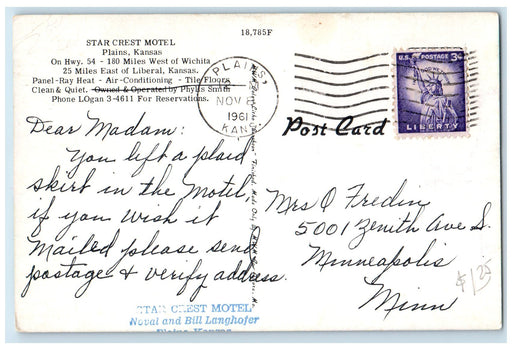 18,785F
STAR CREST MOTEL
Plains, Kansas
On Hwy. 54 - 180 Miles West of Wichita
25 Miles East of Liberal, Kansas.
Panel-Ray Heat - Air-Conditioning - Tile Floors
Clean & Quiet. Owned & Operated by Phylis Smith
Phone LOgan 3-4611 For Reservations.
PLAINS,
NOV 8
1961
KANS.
U.S. POSTAGE 3¢
LIBERTY
Post Card
Dear Madam:
You left a plaid
skirt in the Motel,
if you wish it
mailed please send
postage & verify address.
Mrs O Fredin
5001 Zenith Ave S.
Minneapolis
Minn
$1.25
STAR CREST MOTEL
Noval and Bill Langhofer
Plains, Kansas